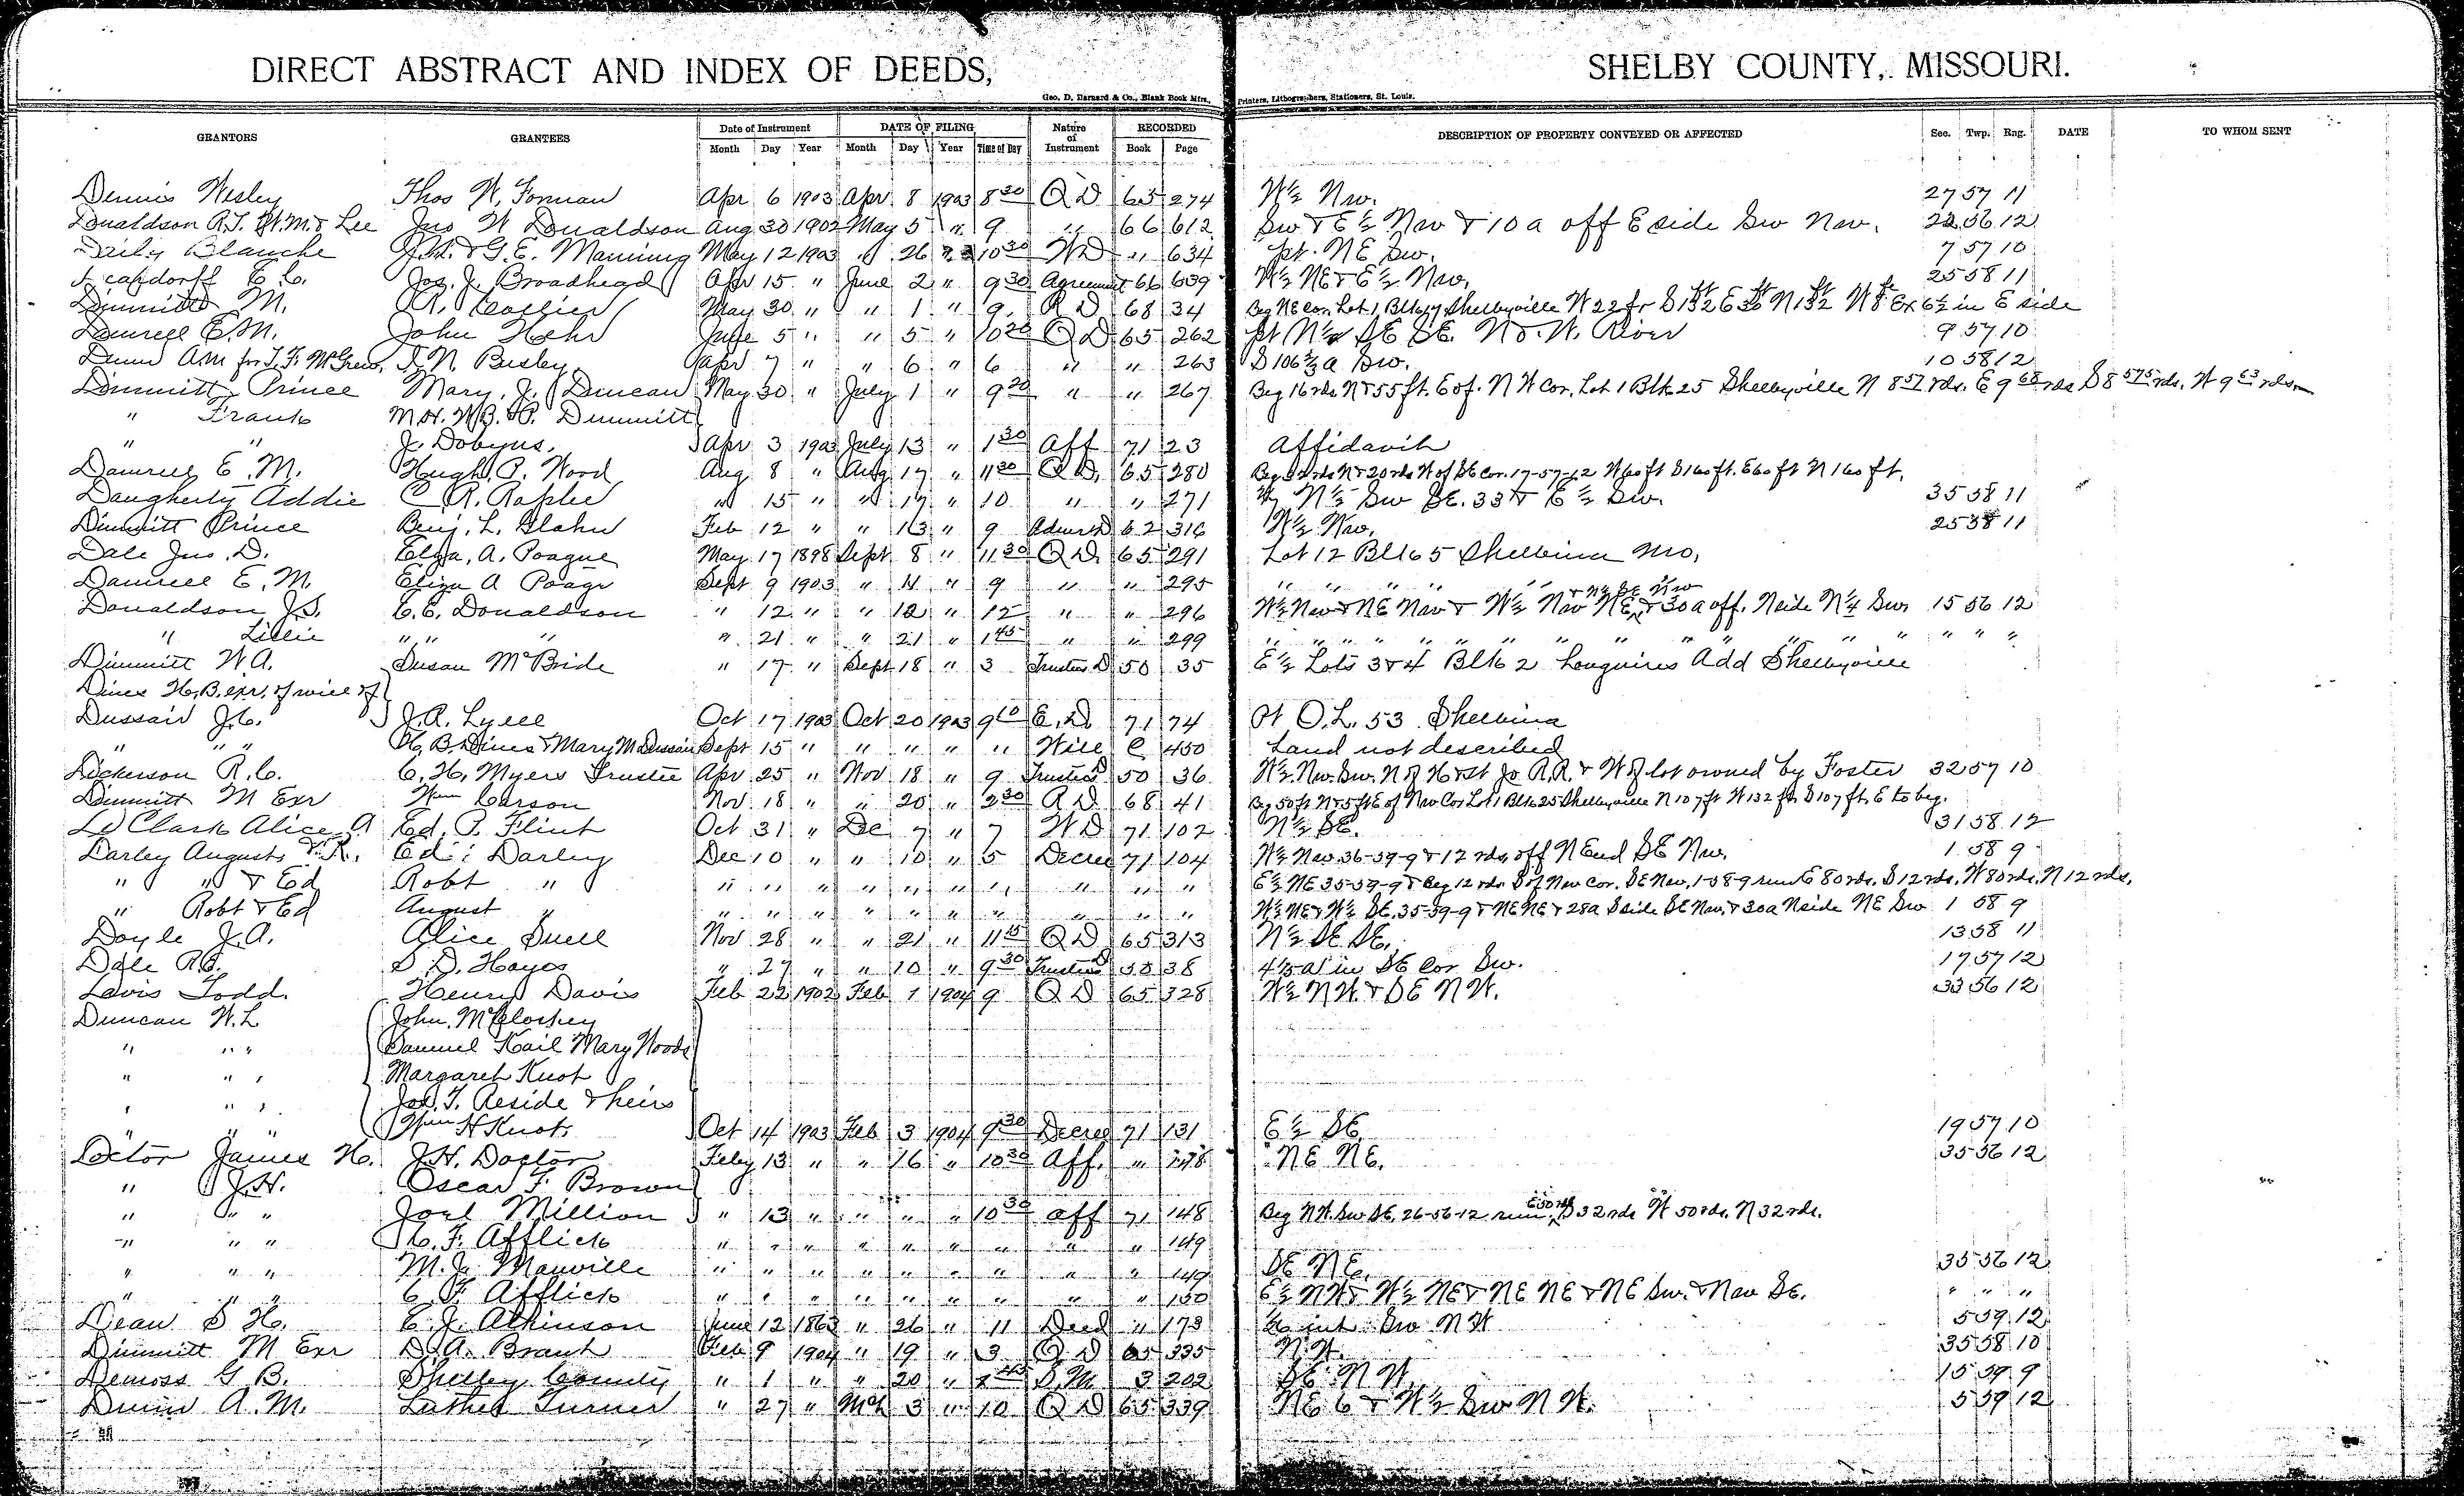 DIRECT ABSTRACT AND INDEX OF DEEDS, SHELBY COUNTY, MISSOURI.
Geo. D. Barnard & Co., Blank Book Mfrs., Printers, Lithographers, Stationers, St. Louis.
GRANTORS GRANTEES Date of Instrument DATE OF FILING Nature of Instrument RECORDED DESCRIPTION OF PROPERTY CONVEYED OR AFFECTED Sec. Twp. Rng. DATE TO WHOM SENT
Month Day Year Month Day Year Time of Day Book Page
Dennis Wesley Thos W. Forman Apr 6 1903 Apr 8 1903 8 30 Q D 65 274 W½ Nw. 27 57 11
Donaldson R.T. W.M. & Lee Jno W Donaldson Aug 30 1902 May 5 " 9 " 66 612 Sw & E½ Nw & 10 a off E side Sw Nw. 22 56 12
Blanche J.M. & G.E. Manning May 12 1903 " 26 " 10 30 WD " 634 pt. NE Sw. 7 57 10
E.C. Jos. J. Broadhead Apr 15 " June 2 " 9 30 Agreement 66 639 W½ NE & E½ Nw. 25 58 11
Dimmitt M. R. Collier May 30 " " 1 " 9 R D 68 34 Beg NE cor. Lot 1 Blk 17 Shelbyville W 22 S 132 E 30 N 132 W 8 Ex 6½ in E side
Damrell E.M. John Hehr June 5 " " 5 " 10 20 Q D 65 262 pt N½ SE SE. No. W. River 9 57 10
Dunn A.M. for T.F. McGrew, T.N. Busley Apr 7 " " 6 " 6 " " 263 S 106⅔ a Sw. 10 58 12
Dimmitt Prince Mary J. Duncan May 30 " July 1 " 9 20 " " 267 Beg 16 rds N & 55 ft. E of N W Cor. Lot 1 Blk 25 Shelbyville N 8 57 rds. E 9 63 rds S 8 575 rds. W 9 63 rds.
" Frank M.H. W.B. & P. Dimmitt
" " J. Dobyns, Apr 3 1903 July 13 " 1 30 Aff 71 23 Affidavit
Damrell E.M. Hugh C. Wood Aug 8 " Aug 17 " 11 30 Q D. 65 280 N & 20 rds W of SE Cor. 17-57-12 W 60 ft S 160 ft. E 60 ft N 160 ft.
Daugherty Addie C.R. Raplee " 15 " " 17 " 10 " " 271 N½ Sw SE. 33 & E½ Sw. 35 58 11
Dimmitt Prince Benj. L. Glahn Feb 12 " " 13 " 9 62 316 W½ Nw. 25 58 11
Dale Jno. D. Elza. A. Poague May 17 1898 Sept 8 " 11 30 Q D. 65 291 Lot 12 Blk 5 Shelbina Mo,
Damrell E.M. Eliza A Poage Sept 9 1903 " 11 " 9 " " 295 " " " " " "
Donaldson J.S. C.E. Donaldson " 12 " " 12 " 12 " " 296 W½ Nw & NE Nw & W½ Nw NE & N½ SE Nw & 30 a off. N side N½ Sw 15 56 12
" Lillie " " " " 21 " " 21 " 1 45 " " 299 " " " " " " " " " " " " "
Dimmitt W A. Susan McBride " 17 " Sept 18 " 3 Trustees D 50 35 E½ Lots 3 & 4 Blk 2 Add Shelbyville
Dines H.B. exr. of will of
Dussair J.C. J.A. Lyell Oct 17 1903 Oct 20 1903 9 10 E. D 71 74 Pt O.L. 53 Shelbina
" " " H.B. Dines & Mary M Dussair Sept 15 " " " " " Will C 450 Land not described
Dickerson R.C. C.H. Myers Trustee Apr 25 " Nov 18 " 9 Trustees D 50 36 W½ Nw Sw. N of H & St Jo R.R. & W of lot owned by Foster 32 57 10
Dimmitt M Exr Wm Carson Nov 18 " " 20 " 2 30 R D 68 41 Beg 50 ft N & 5 ft E of Nw Cor Lot 1 Blk 25 Shelbyville N 107 ft W 132 ft. S 107 ft. E to beg.
De Clark Alice A Ed. P. Flint Oct 31 " De 7 " 7 W D 71 102 N½ SE. 31 58 12
Darley August & R. Ed Darley Dec 10 " " 10 " 5 Decree 71 104 W½ Nw 36-59-9 & 12 rds. off N End SE Nw. 1 58 9
" " & Ed Robt " " " " " " " " " " " E½ NE 35-59-9 & Beg 12 rds S of Nw cor. SE Nw. 1-58-9 run E 80 rds. S 12 rds, W 80 rds. N 12 rds.
" Robt & Ed August " " " " " " " " " " " W½ NE & W½ SE. 35-59-9 & NE NE & 28a S side SE Nw. & 30a N side NE Sw 1 58 9
Doyle J.A. Alice Snell Nov 28 " " 21 " 11 15 Q D 65 313 N½ SE SE. 13 58 11
Dale R.C. S.D. Hayes " 27 " " 10 " 9 30 Trustees D 50 38 in SE Cor Sw. 17 57 12
Davis Todd. Henry Davis Feb 22 1902 Feb 1 1904 9 Q D 65 328 W½ N W. & SE N W. 33 56 12
Duncan W.L John McCloskey
" " " Samuel Kail Mary Woods
" " " Margaret Knot
" " " Jos. T. Reside & heirs
" " " Wm H Knot Oct 14 1903 Feb 3 1904 9 30 Decree 71 131 E½ SE 19 57 10
Doctor James H. J.H. Doctor Feby 13 " " 16 " 10 30 Aff. " 148 NE NE. 35 56 12
" J.H. Oscar F. Brown
" " " Joel Million " 13 " " " " 10 30 Aff 71 148 Beg N W. Sw SE. 26-56-12 run E 50 rds S 32 rds W 50 rds. N 32 rds.
" " " C.F. Afflick " " " " " " " " " 149
" " " M.J. Manville " " " " " " " " " 149 SE NE. 35 56 12
" " " C.F. Afflick " " " " " " " " " 150 E½ NW & W½ NE & NE NE & NE Sw. & Nw SE. " " "
Dean S H. E.J. Atkinson June 12 1863 " 26 " 11 Deed " 173 int. Sw N W 5 59 12
Dimmitt M Exr D.A. Brant Feb 9 1904 " 19 " 3 Q D 65 335 N W. 35 58 10
Demoss G B. Shelby County " 1 " " 20 " S.M. 3 202 SE N W. 15 59 9
Dunn A.M. Luther Turner " 27 " Mch 3 " 10 Q D 65 339 NE & W½ Sw N W. 5 59 12